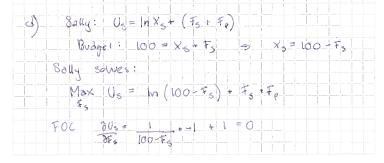 d) Sally: U_s = ln X_s + (F_s + F_p)
Budget: 100 = X_s + F_s ⇒ X_s = 100 - F_s
Sally solves:
Max U_s = ln (100 - F_s) + F_s + F_p
F_s
FOC ∂U_s/∂F_s = 1/(100-F_s) · -1 + 1 = 0